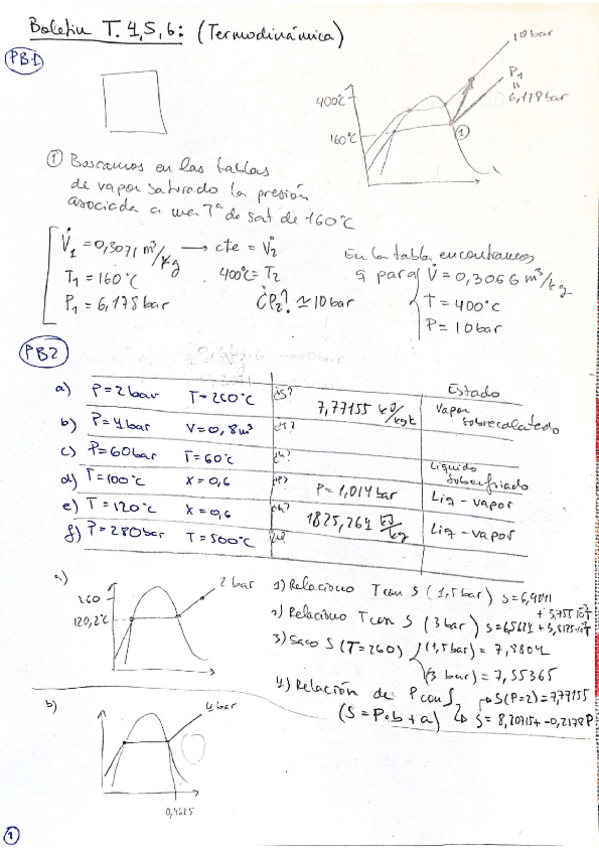 Boletín T. 4,5,6: (Termodinámica)
PB1
10 bar
P1
=
6,178 bar
400°C
160°C
①
① Buscamos en las tablas
de vapor saturado la presión
asociada a una Tª de sat de 160°C
V̇1 = 0,3071 m³/kg → cte = V̇2
T1 = 160°C 400°C = T2
P1 = 6,178 bar ¿P2? ≃ 10 bar
En la tabla encontramos
q para V̇ = 0,3066 m³/kg
T = 400°C
P = 10 bar
PB2
Estado
a) P = 2 bar T = 260°C ¿S? 7,77155 kJ/kgK Vapor sobrecalentado
b) P = 4 bar V = 0,8 m³
c) P = 60 bar T = 60°C ¿h? Líquido subenfriado
d) T = 100°C X = 0,6 ¿P? P = 1,014 bar Liq - vapor
e) T = 120°C X = 0,6 ¿h? 1825,264 kJ/kg Liq - vapor
f) P = 280 bar T = 500°C
a)
2 bar
260
120,2°C
1) Relaciono T con S (1,5 bar)
2) Relaciono T con S (3 bar)
3) Saco S (T=260) (1,5 bar) = 7,8804
(3 bar) = 7,55365
4) Relación de P con S, → S(P=2) = 7,77155
(S = P·b + a) ↳ S = 8,20715 + -0,2178P
b)
4 bar
0,4625
①